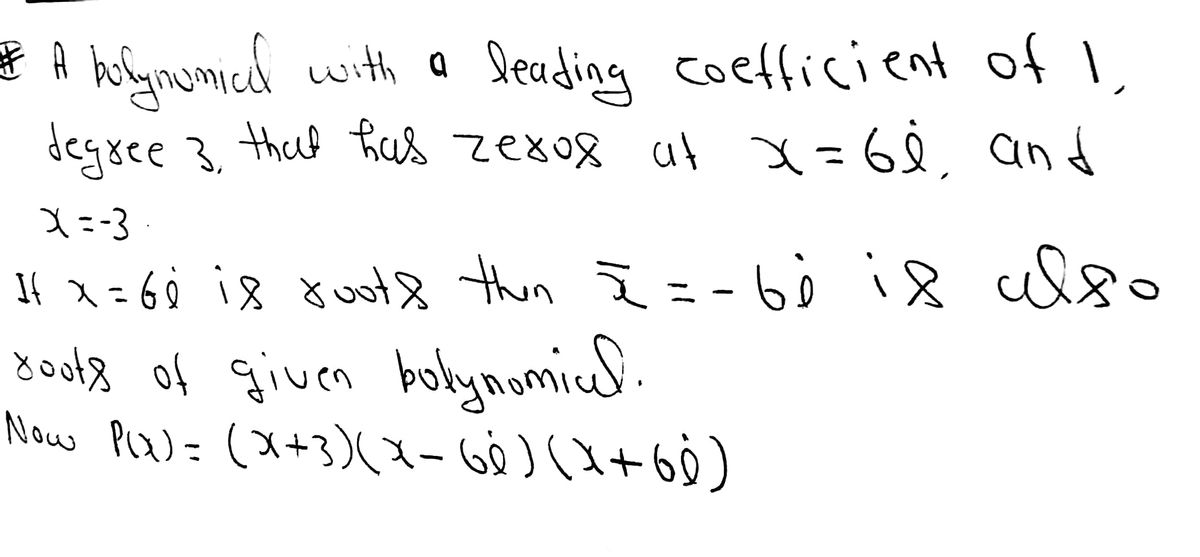 # A polynomial with a leading coefficient of 1,
degree 3, that has zeros at x = 6i, and
x = -3.
If x = 6i is roots then x̄ = - 6i is also
roots of given polynomial.
Now P(x) = (x+3)(x - 6i)(x+6i)